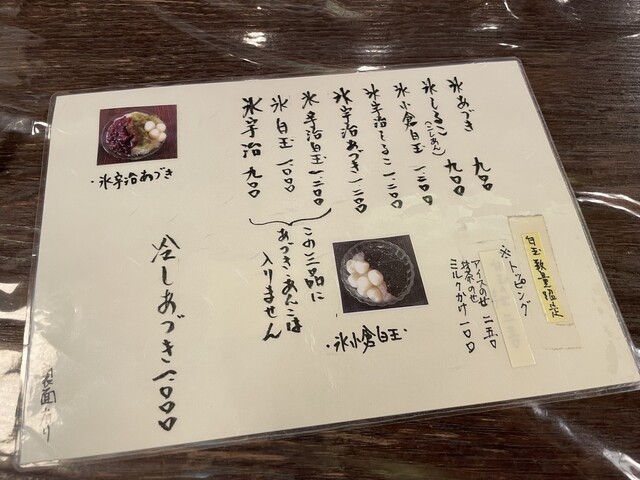 氷あづき 九〇〇
氷しるこ(こしあん) 九〇〇
氷小倉白玉 一、二〇〇
氷宇治しるこ 一、二〇〇
氷宇治あづき 一、二〇〇
氷宇治白玉 一、二〇〇
氷白玉 一、〇〇〇
氷宇治 九〇〇
この三品に
あづき・あんこは
入りません
白玉数量限定
※トッピング
アイスのせ 二五〇
抹茶のせ
ミルクかけ 一〇〇
・氷小倉白玉・
・氷宇治あづき
冷しあづき 一、〇〇〇
裏面あり